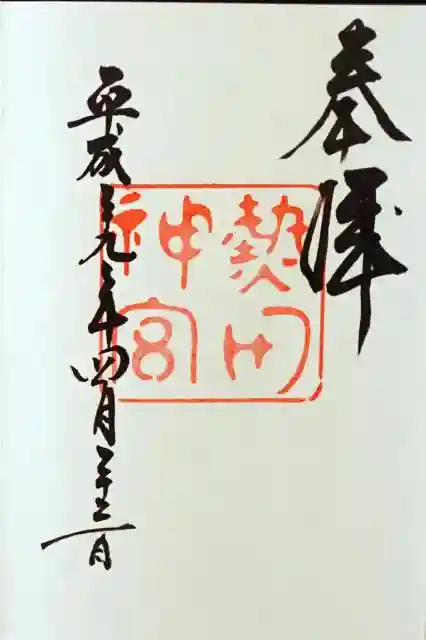 奉拝
熱田
神宮
平成二九年四月二十三日